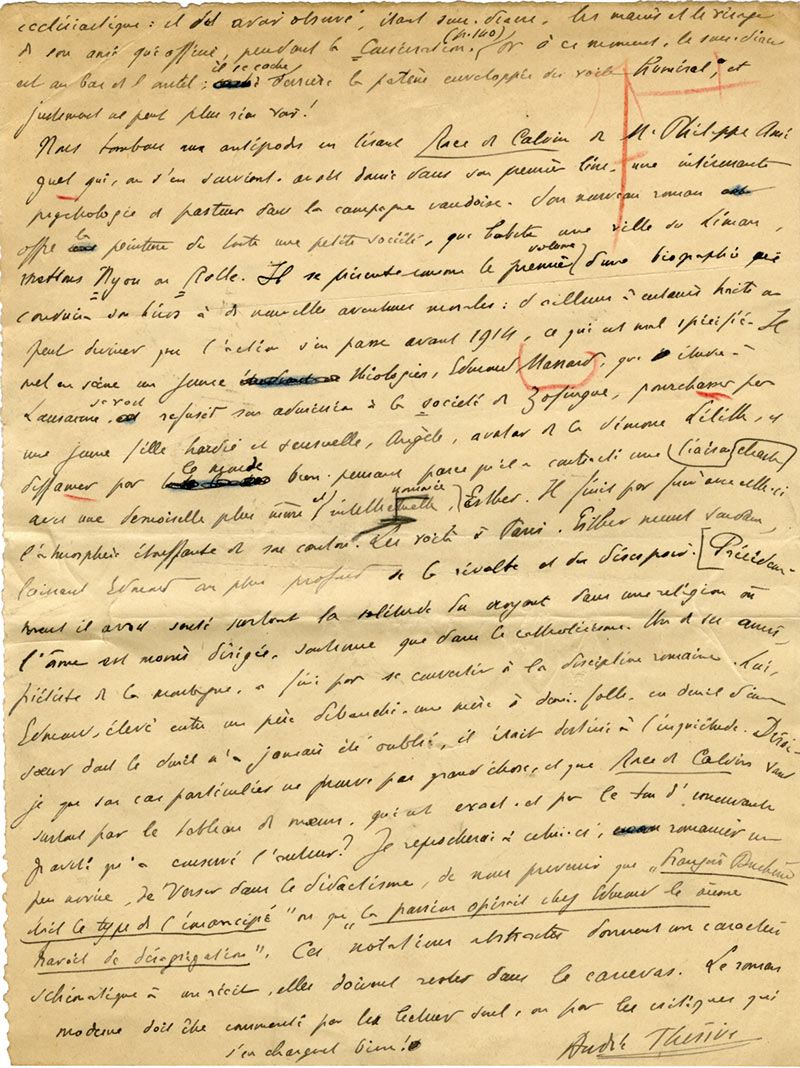 ecclésiastique : il dit avoir observé, étant sous-diacre, les mains et le visage
de son ami qui officie, pendant la Consécration. (p. 140) Or à ce moment, le sous-diacre
est au bas de l'autel ; il se cache derrière la patène enveloppée du voile huméral, et
justement ne peut plus rien voir !
Nous tombons aux antipodes en lisant Race de Calvin de M. Philippe Ami
guet qui, on s'en souvient, avait donné dans son premier livre, une intéressante
psychologie de pasteur dans la campagne vaudoise. Son nouveau roman
offre la peinture de toute une petite société, qui habite une ville du Léman,
mettons Nyon ou Rolle. Il se présente comme le premier volume d'une biographie qui
conduira son héros à de nouvelles aventures morales : d'ailleurs à certains traits on
peut deviner que l'action s'en passe avant 1914, ce qui est mal spécifié. Il
met en scène un jeune théologien, Edmond Massard, qui étudie à
Lausanne, se voit refuser son admission à la société de Zofingue, pourchasser par
une jeune fille hardie et sensuelle, Angèle, avatar de la démone Lilith, et
diffamer par le monde bien-pensant parce qu'il a contracté une liaison chaste
avec une demoiselle plus mûre et intellectuelle, nommée Esther. Il finit par fuir avec elle
l'atmosphère étouffante de son canton. Les voilà à Paris. Esther meurt soudain,
laissant Edmond au plus profond de la révolte et du désespoir. Précédem-
ment il avait senti surtout la solitude du croyant dans une religion où
l'âme est moins dirigée, soutenue que dans le catholicisme. Un de ses amis,
piétiste de la montagne, a fini par se convertir à la discipline romaine. Lui,
Edmond, élevé entre un père débauché, une mère à demi-folle, en deuil d'une
sœur dont le deuil n'a jamais été oublié, il était destiné à l'inquiétude. Dirai-
je que son cas particulier ne prouve pas grand'chose, et que Race de Calvin vaut
surtout par le tableau de mœurs, qui est exact, et par le ton d'émouvante
gravité qu'a conservé l'auteur ? Je reprocherai à celui-ci, romancier un
peu novice, de verser dans le didactisme, de nous prévenir que "François Duchêne
était le type de l'émancipé" ou que "la passion opérait chez Edmond le même
travail de désagrégation". Ces notations abstraites donnent un caractère
schématique à un récit, elles doivent rester dans le canevas. Le roman
moderne doit être commenté par le lecteur seul, ou par les critiques qui
s'en chargent bien !
André Thérive